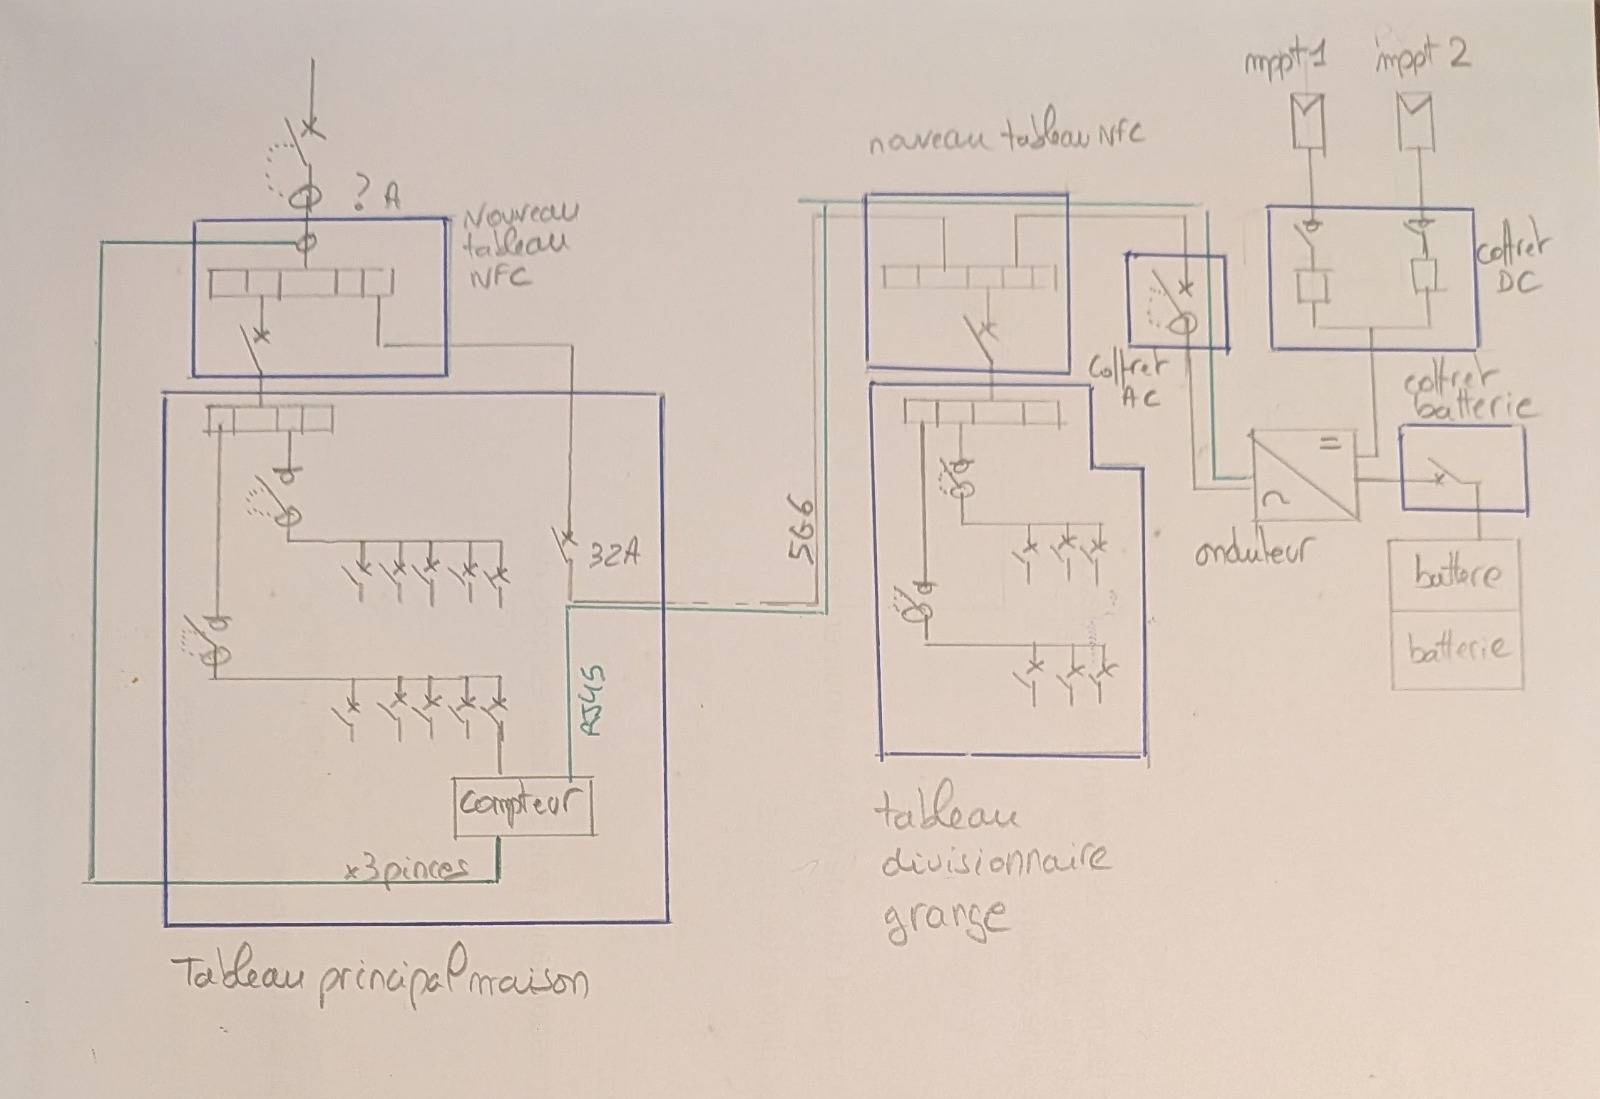 mppt 1
mppt 2
nouveau tableau NFC
? A
Nouveau
tableau
NFC
coffret
DC
Coffret
AC
coffret
batterie
32A
5G6
onduleur
battere
batterie
RJ45
Compteur
x3 pinces
tableau
divisionnaire
grange
Tableau principal maison